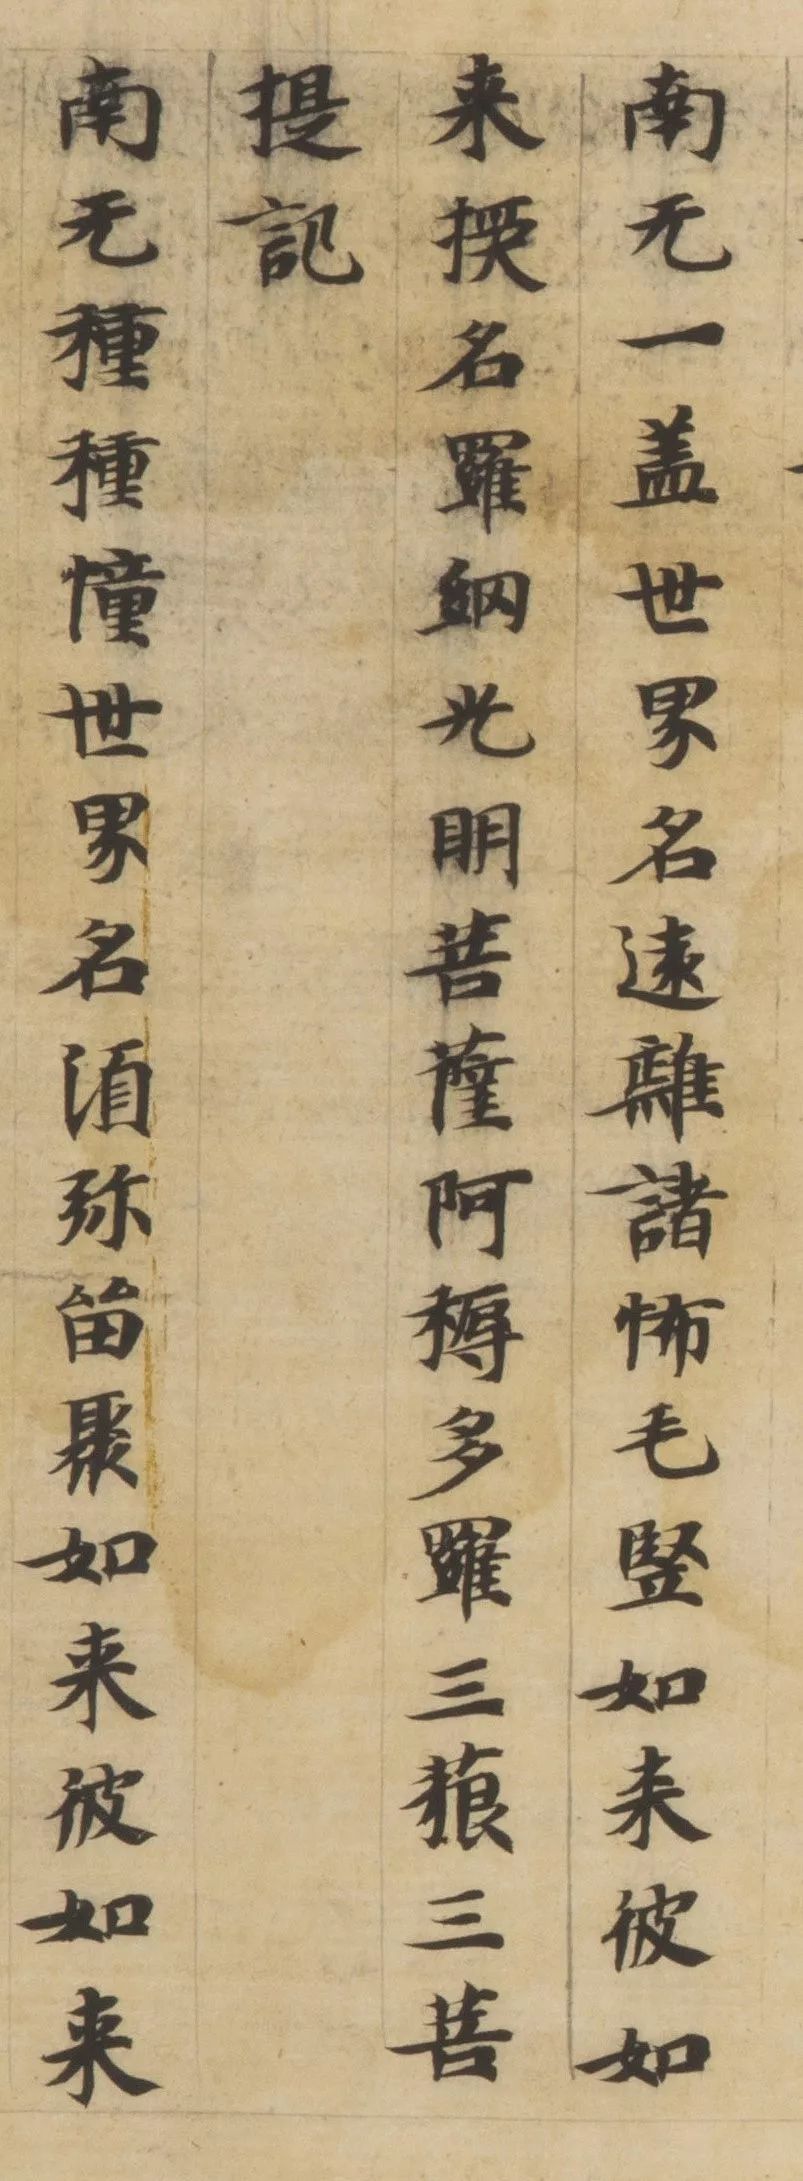 南无一盖世界名遠離諸怖毛竪如来彼如
来授名羅網光明菩薩阿耨多羅三藐三菩
提記
南无種種憧世界名須弥留聚如来彼如来